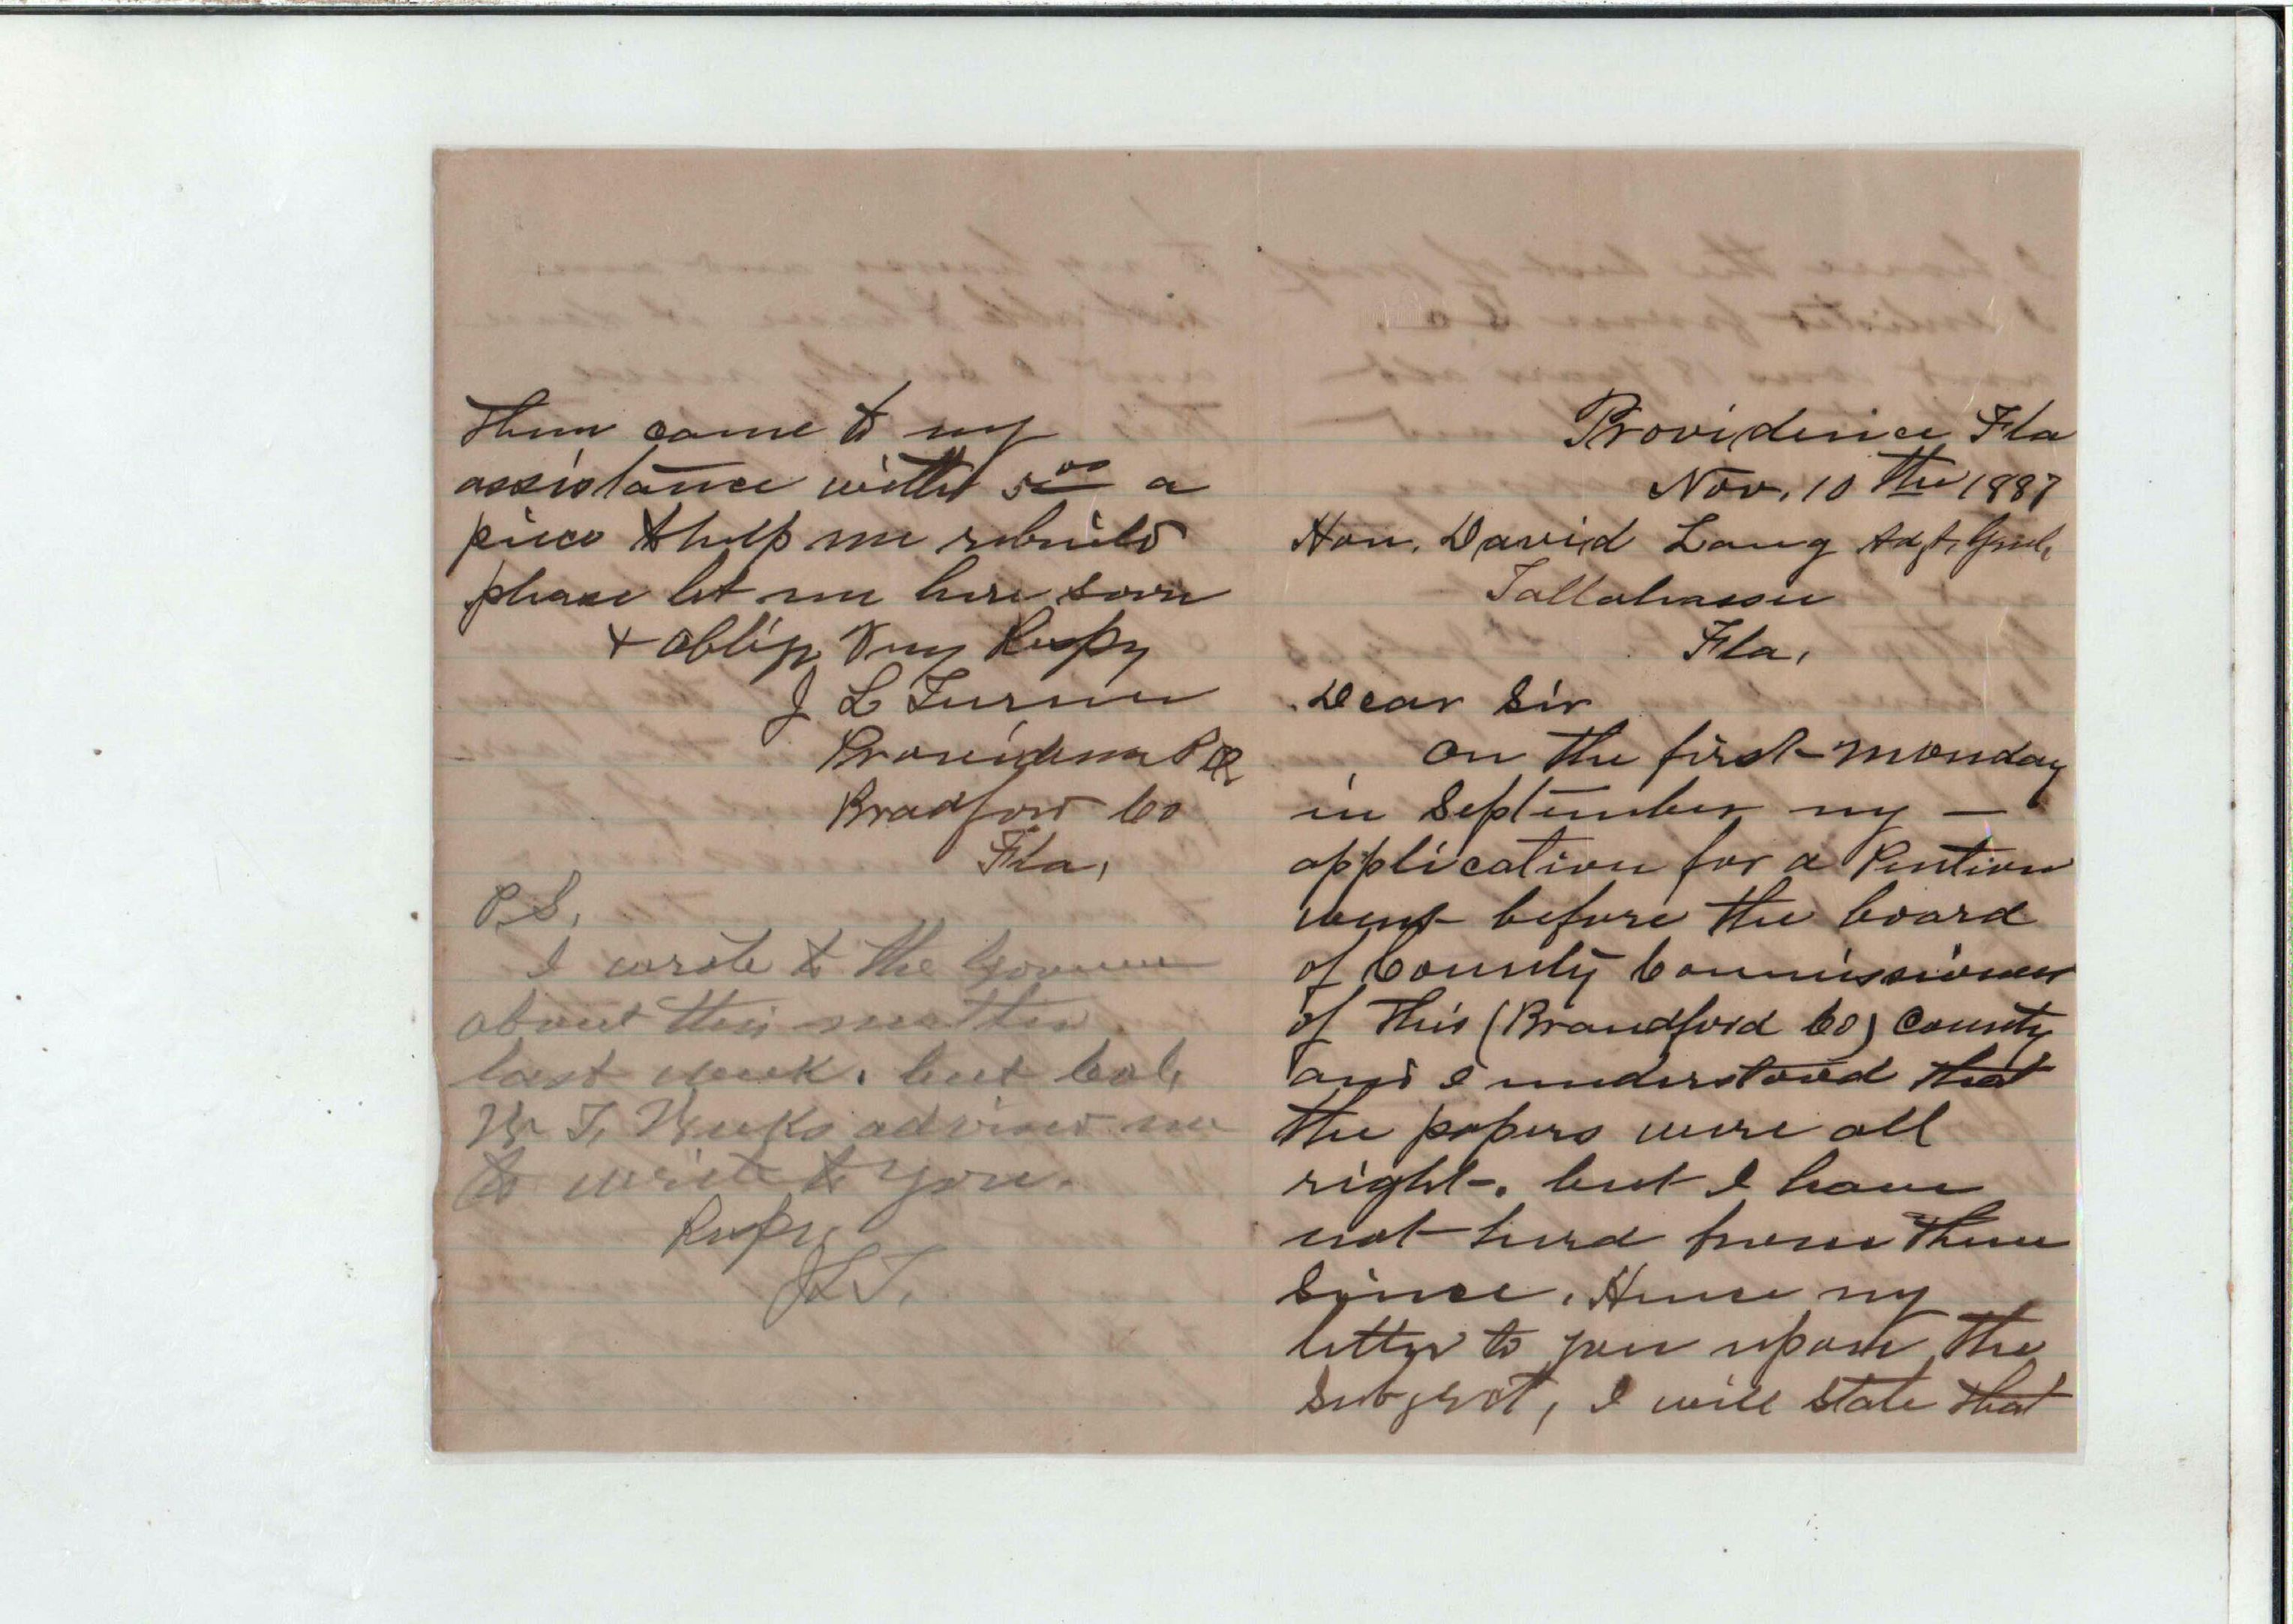 Providence Fla
Nov. 10 the 1887
Hon. David Lang Adjt, Genl,
Tallahassee
Fla,
Dear Sir
on the first Monday
in September my —
application for a Pention
went before the board
of County Commissioners
of this (Brandford Co) County
and I understood that
the papers were all
right. but I have
not herd from them
since. Hence my
letter to you upon the
subject, I will state that
them came to my
assistance with 5 00 a
piece to help me rebuild
please let me here soon
+ oblige Very Respy
J L Turner
Providence P O
Bradford Co
Fla,
P.S,
I wrote to the Governor
about this matter
last week. but Col,
W T, Weeks advised me
to write to you.
Respy,
JLT.